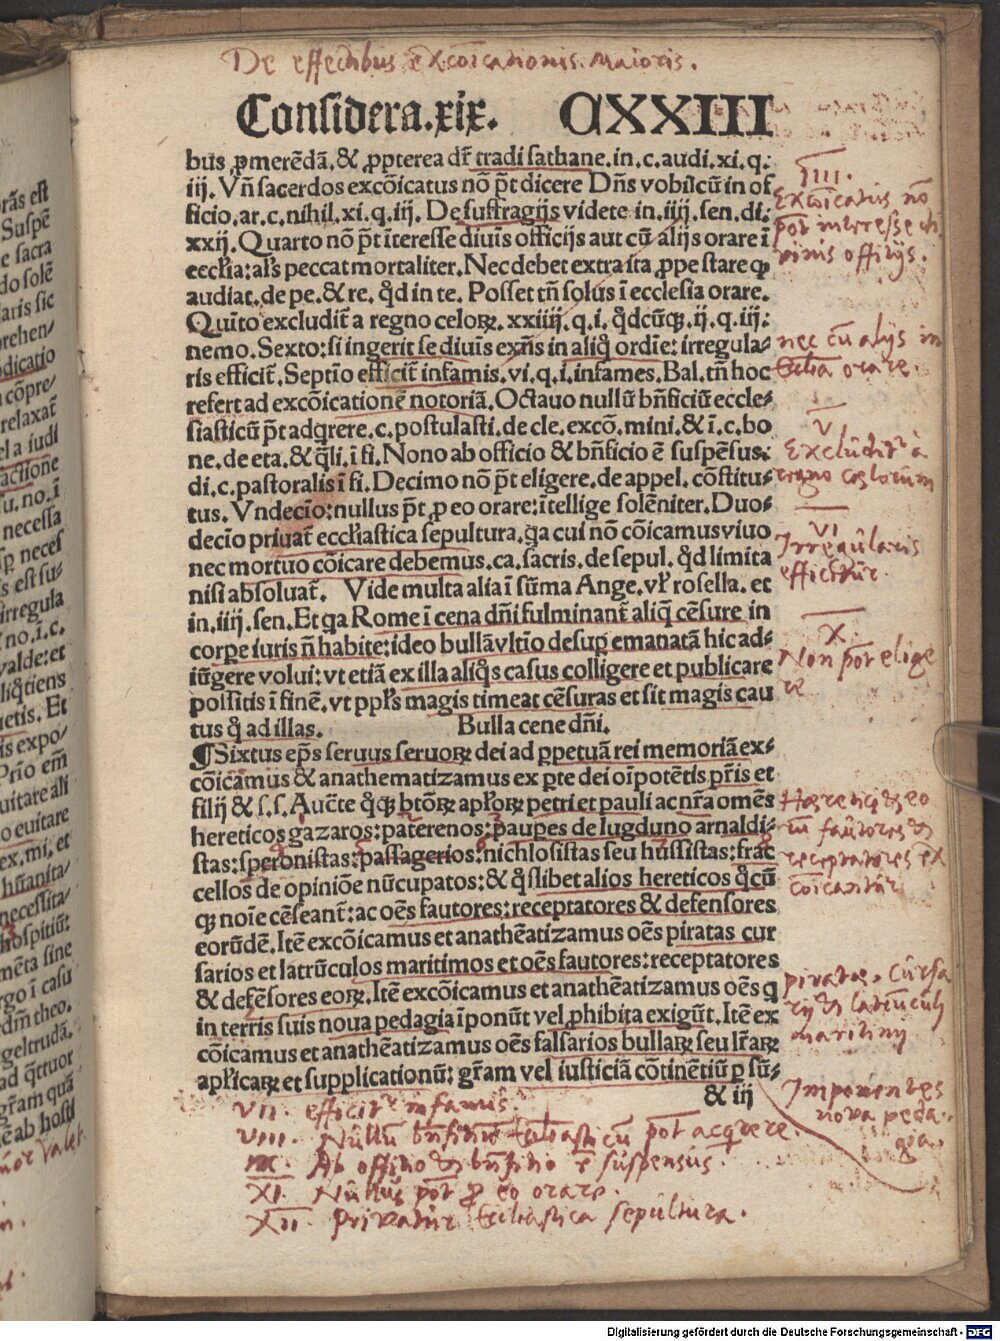 De effectibus exco͞icationis maioris.
Considera.xix. CXXIII
bus ꝓmerēdā. & ꝓpterea dr̄ tradi sathane. in. c. audi. xi. q.
iij. Vn̄ sacerdos excōicatus nō pt̄ dicere Dn̄s vobiscū in of
ficio. ar. c. nihil. xi. q. iij. De suffragijs videte in. iiij. sen. di.
xxij. Quarto nō pt̄ īteresse diuīs officijs aut cū alijs orare ī
eccłia: ał's peccat mortaliter. Nec debet extra ita ꝓpe stare ꝙ
audiat. de pe. & re. qd̄ in te. Posset tn̄ solus ī ecclesia orare.
Quīto excludit̄ a regno celoꝝ. xxiiij. q. i. qd̄cūqꝫ. ij. q. iij:
nemo. Sexto: si ingerit se diuīs exn̄s in aliq̄ ordīe: irregula-
ris efficit̄. Septīo efficit̄ infamis. vi. q. i. infames. Bal. tn̄ hoc
refert ad excōicationē notoriā. Octauo nullū bn̄ficiū eccle-
siasticū pt̄ adqrere. c. postulasti. de cle. excō. mini. & ī. c. bo
ne. de eta. & qli. ī fi. Nono ab officio & bn̄ficio ē suspēsus:
di. c. pastoralis ī fi. Decimo nō pt̄ eligere. de appel. cōstitu-
tus. Vndecīo: nullus pt̄ ꝓ eo orare: ītellige solēniter. Duo-
decīo priuat̄ eccłiastica sepultura. qa cui nō cōicamus viuo
nec mortuo cōicare debemus. ca. sacris. de sepul. qd̄ limita
nisi absoluat̄. Vide multa alia ī sūma Ange. vł rosella. et
in. iiij. sen. Et qa Rome ī cena dn̄i fulminant̄ aliq̄ cēsure in
corpe iuris n̄ habite: ideo bullā vltīo desuꝑ emanatā hic ad-
iūgere volui: vt etiā ex illa aliq̄s casus colligere et publicare
possitis ī finē. vt ppłs magis timeat cēsuras et sit magis cau
tus q̄ ad illas. Bulla cene dn̄i.
¶Sixtus ep̄s seruus seruoꝝ dei ad ꝑpetuā rei memoriā ex-
cōicamus & anathematizamus ex ꝑte dei oīpotētis pr̄is et
filij & s. s. Aucte qqꝫ btōꝝ apłoꝝ petri et pauli ac nr̄a omēs
hereticos gazaros: paterenos: paupes de lugduno arnaldi-
stas: speronistas: passagerios: nichlosistas seu hussistas: frac
cellos de opiniōe nūcupatos: & qslibet alios hereticos qcū
qꝫ noīe cēseant̄: ac oēs fautores: receptatores & defensores
eorūdē. Itē excōicamus et anathēatizamus oēs piratas cur
sarios et latrūculos maritimos et oēs fautores: receptatores
& defēsores eoꝝ. Itē excōicamus et anathēatizamus oēs q
in terris suis noua pedagia īponūt vel ꝓhibita exigūt. Itē ex
cōicamus et anathēatizamus oēs falsarios bullaꝝ seu lr̄aꝝ
apłicaꝝ et supplicationū: gr̄am vel iusticiā cōtinētiū ꝑ sū-
& iij
IIII.
Excōicatus nō
pōt interesse di
vinis offitijs.
nec cū alijs in
Ecclesia orare.
V
Excludit' à
regno coelorum
VI
Irregularis
efficitur.
X.
Non pōt elige
re
Haeretici & eo
rū fautores &
receptatores ex
cōicantur
piratae. Cursa
rij & latrunculi
maritimi
Imponentes
nova peda-
gia.
VII. efficit' infamis.
VIII. Nullū bn̄fitiū Ecclīasticū pōt acquirere.
IX. Ab offitio & bn̄fitio ē suspensus.
XI. Nullus pōt ꝓ eo orare.
XII. Privatur Ecclīastica sepultura.
Digitalisierung gefördert durch die Deutsche Forschungsgemeinschaft - DFG